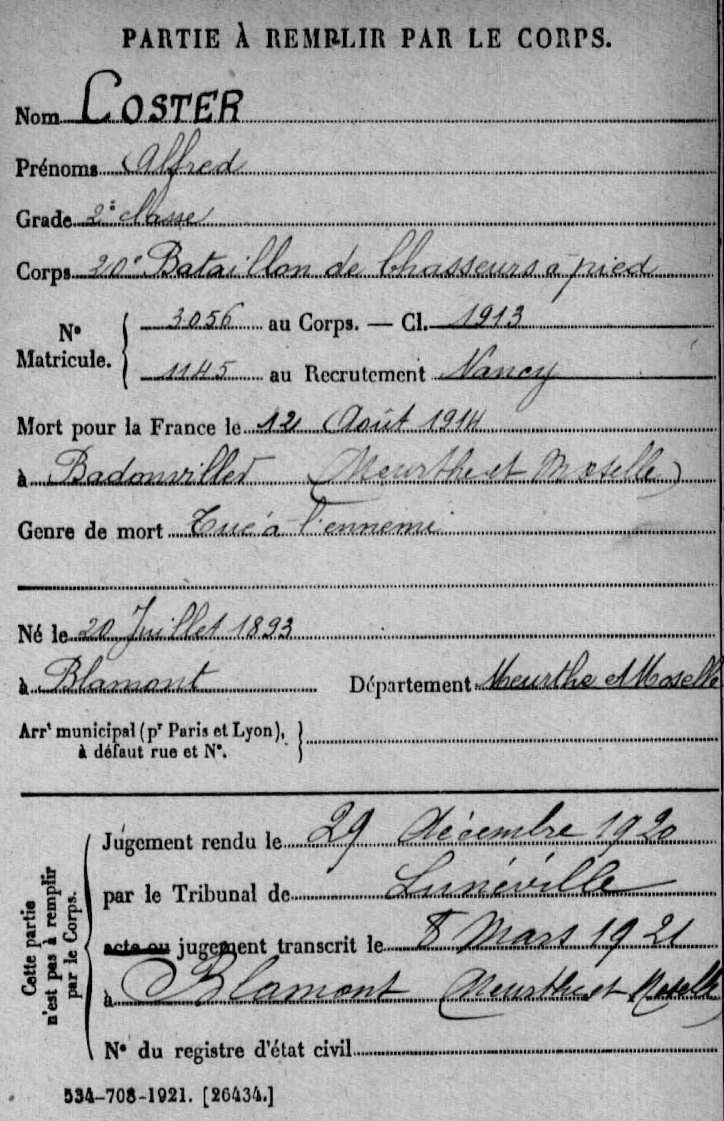 PARTIE À REMPLIR PAR LE CORPS.
Nom COSTER
Prénoms Alfred
Grade 2e classe
Corps 20e Bataillon de Chasseurs à pied
N° Matricule. 3056 au Corps. — Cl. 1913
1145 au Recrutement Nancy
Mort pour la France le 12 Août 1914
à Badonviller (Meurthe et Moselle)
Genre de mort Tué à l'ennemi
Né le 20 Juillet 1893
à Blamont Département Meurthe et Moselle
Arrt municipal (pr Paris et Lyon),
à défaut rue et N°.
Cette partie
n'est pas à remplir
par le Corps.
Jugement rendu le 29 décembre 1920
par le Tribunal de Lunéville
acte ou jugement transcrit le 8 Mars 1921
à Blamont (Meurthe et Moselle)
N° du registre d'état civil
534-708-1921. [26434.]